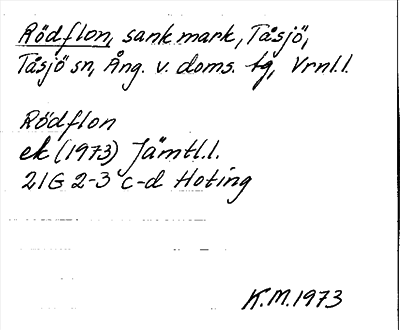 Rödflon, sank mark, Tåsjö,
Tåsjö sn, Ång. v. doms. tg, Vrnl.l.
Rödflon
ek (1973) Jämtl.l.
21G 2-3 c-d Hoting
K.M.1973